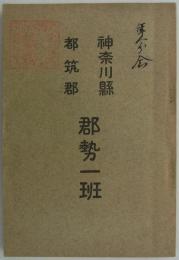 神奈川縣
都筑郡
郡勢一班